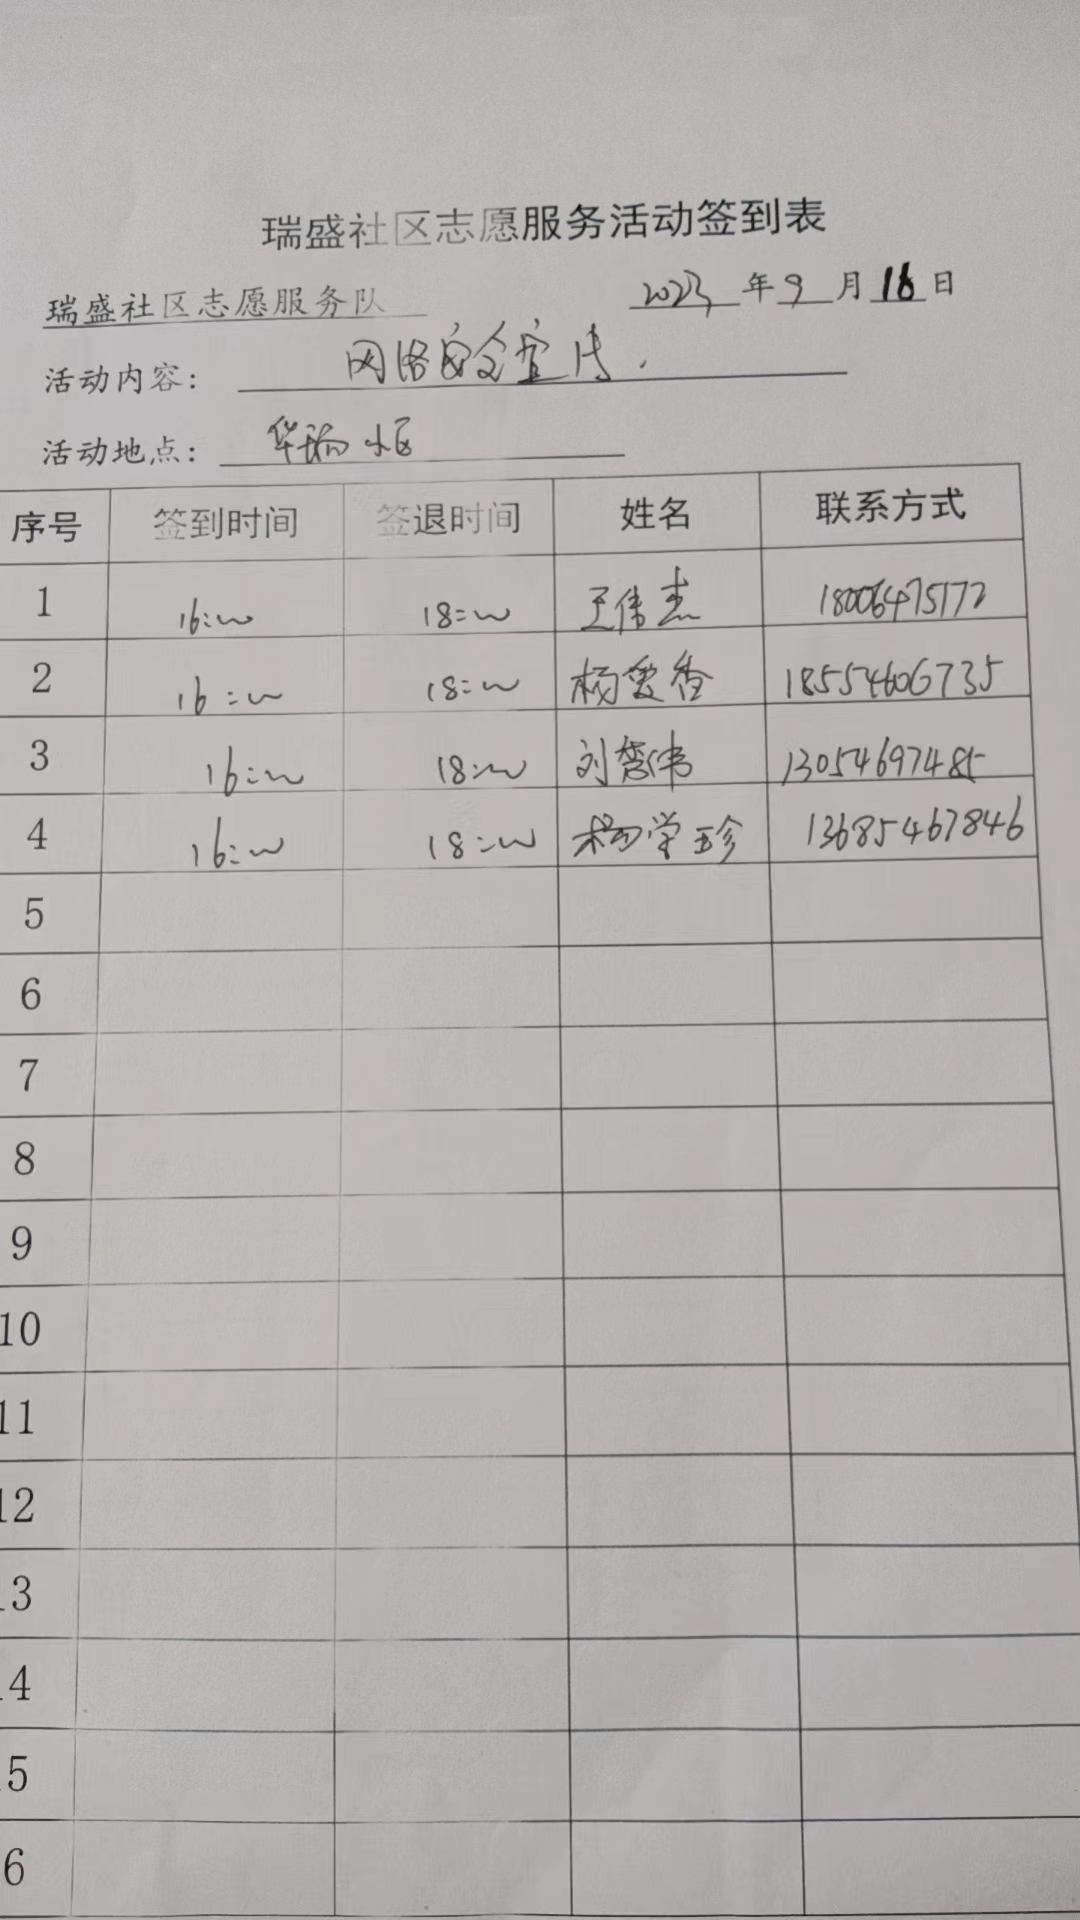 瑞盛社区志愿服务活动签到表
瑞盛社区志愿服务队 2023年9月16日
活动内容： 网络安全宣传.
活动地点： 华瑞小区
序号 签到时间 签退时间 姓名 联系方式
1 16:00 18:00 王伟杰 18006475172
2 16:00 18:00 杨爱香 18554606735
3 16:00 18:00 刘伟 13054697485
4 16:00 18:00 杨学珍 13685467846
5
6
7
8
9
10
11
12
13
14
15
16